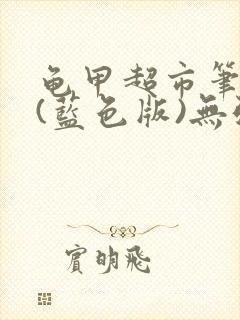 龟甲超市筆
(藍色版)無
賓明飛